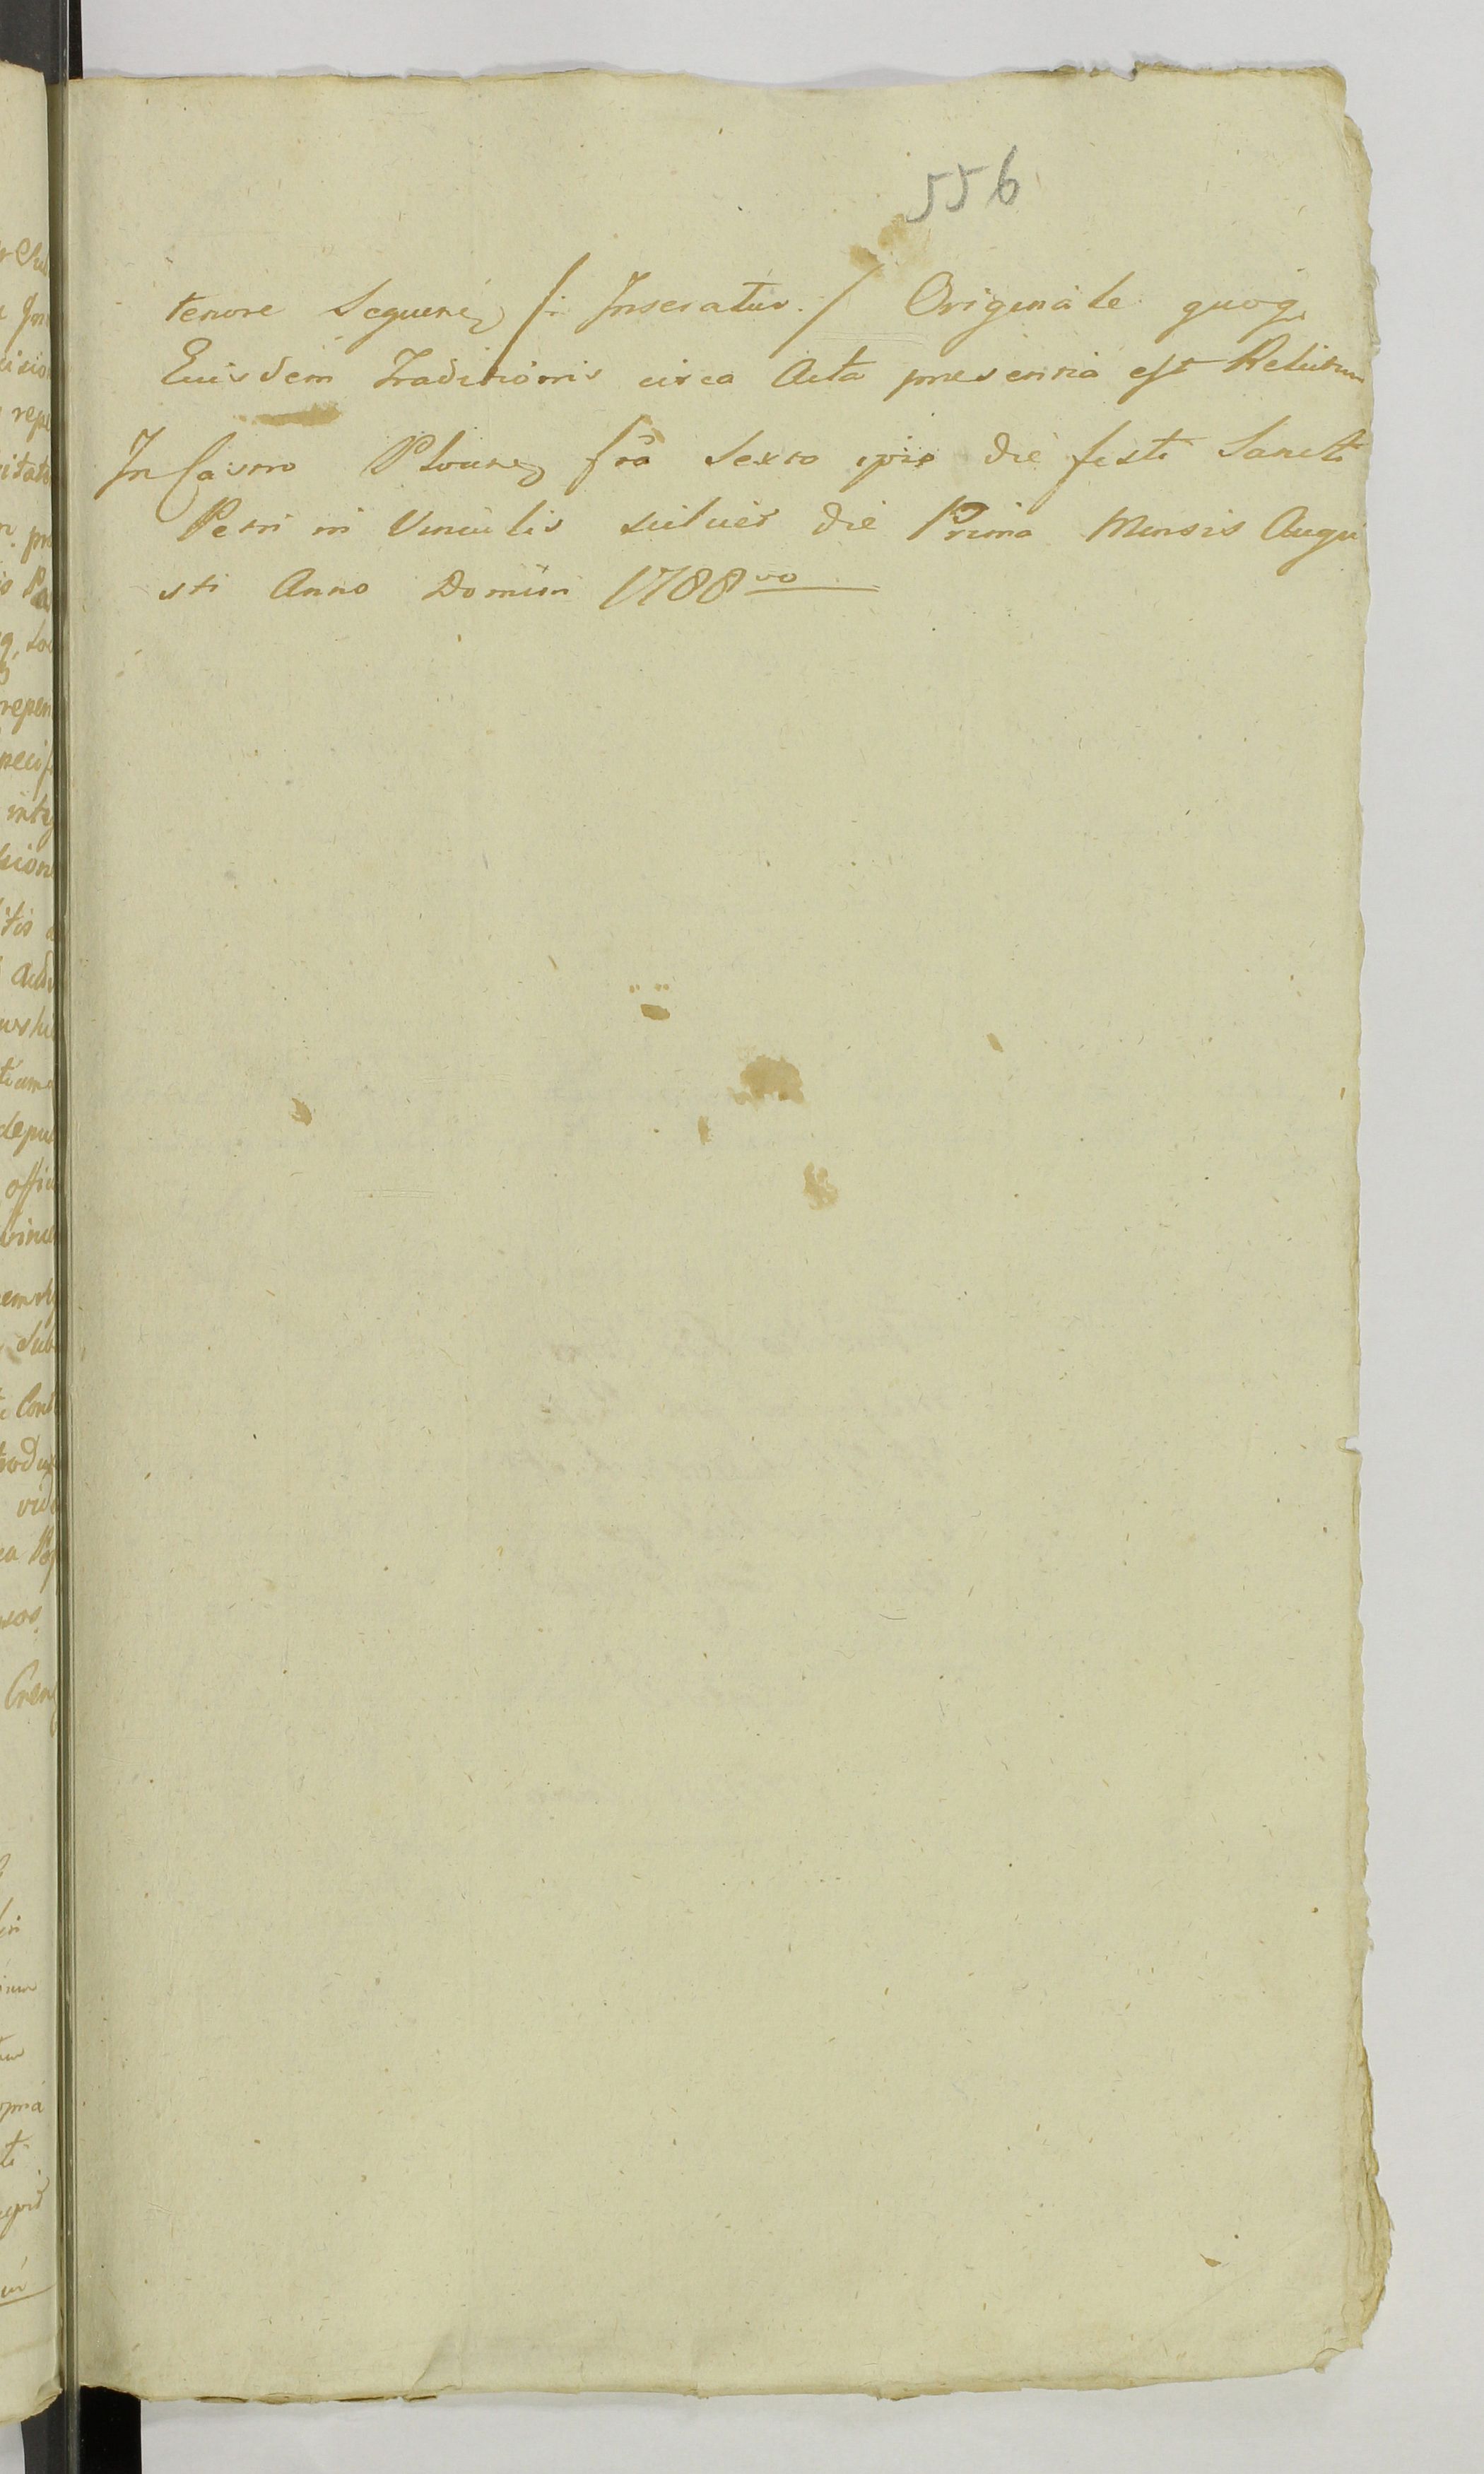 556
tenore Sequenȝ /: Inseratur. :/ Originale quoq̨
Eiusdem Traditionis circa Acta presentia est Relictum
In Castro Płocenȝ fr̃a Sexta ipso die festi Sancti
Petri in Vinculis scilicet die Prima Mensis Augu
sti Anno Domini 1788vo